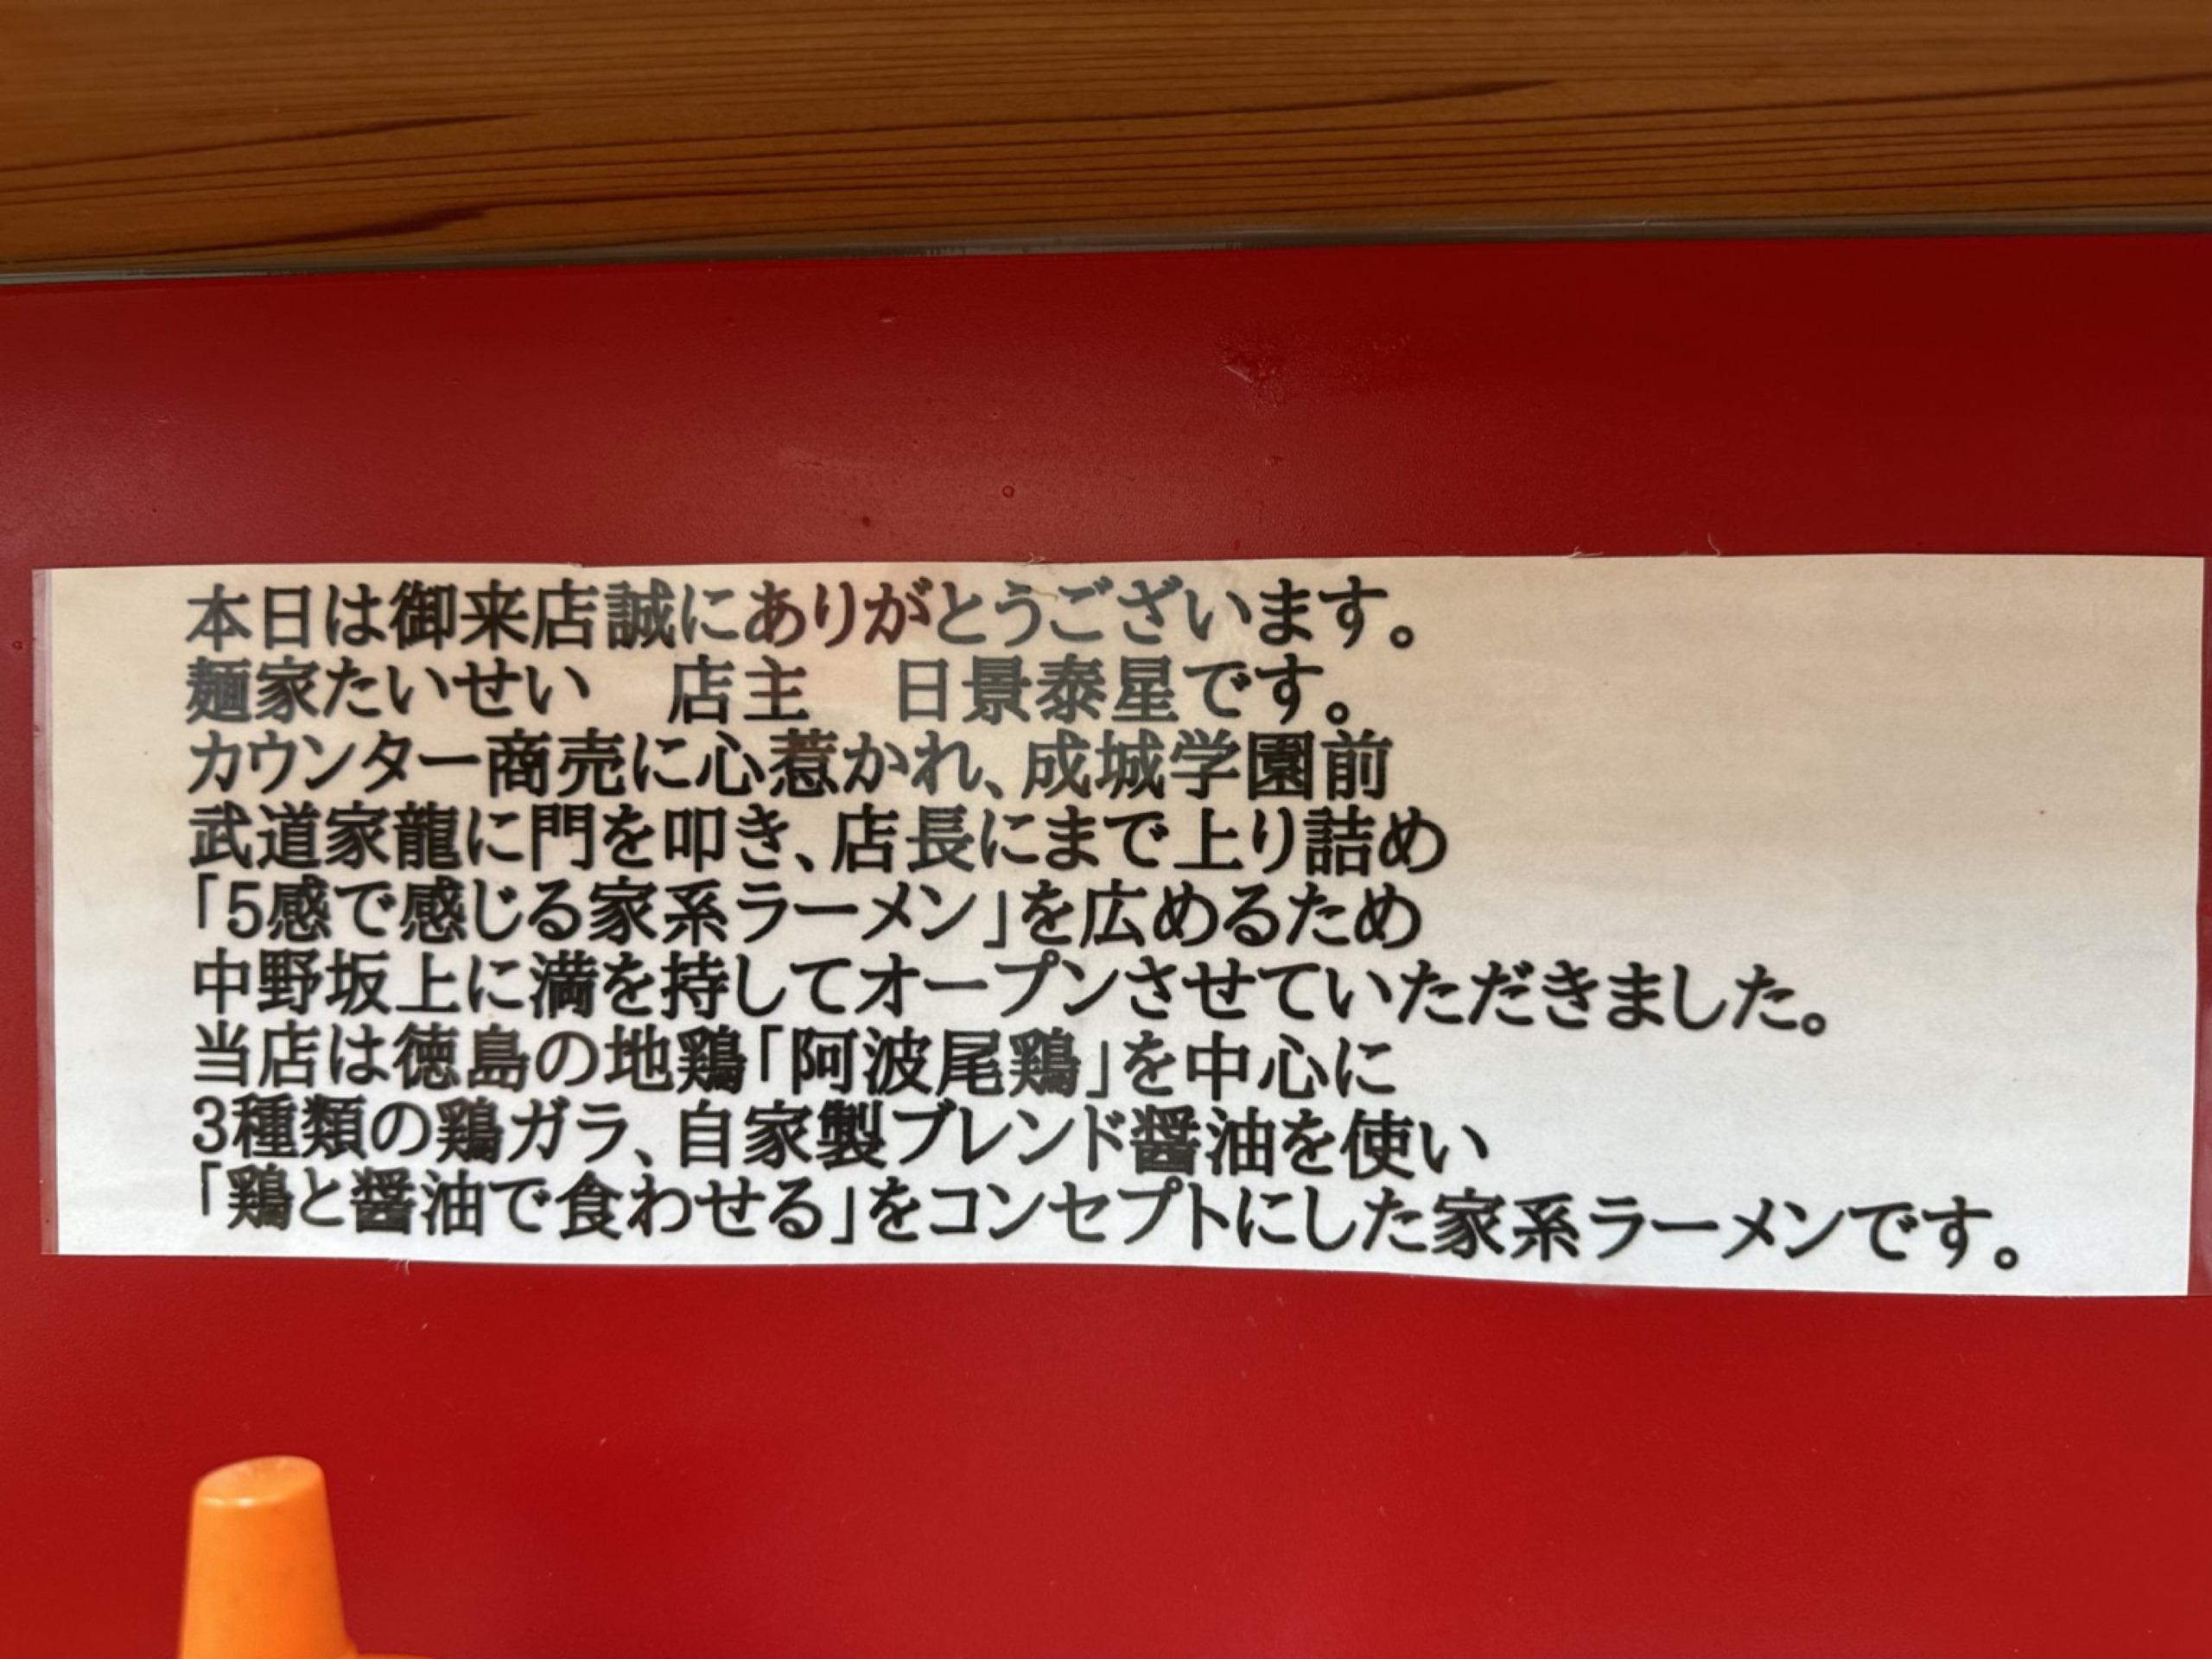 本日は御来店誠にありがとうございます。
麺家たいせい　店主　日景泰星です。
カウンター商売に心惹かれ、成城学園前
武道家龍に門を叩き、店長にまで上り詰め
「5感で感じる家系ラーメン」を広めるため
中野坂上に満を持してオープンさせていただきました。
当店は徳島の地鶏「阿波尾鶏」を中心に
3種類の鶏ガラ、自家製ブレンド醤油を使い
「鶏と醤油で食わせる」をコンセプトにした家系ラーメンです。